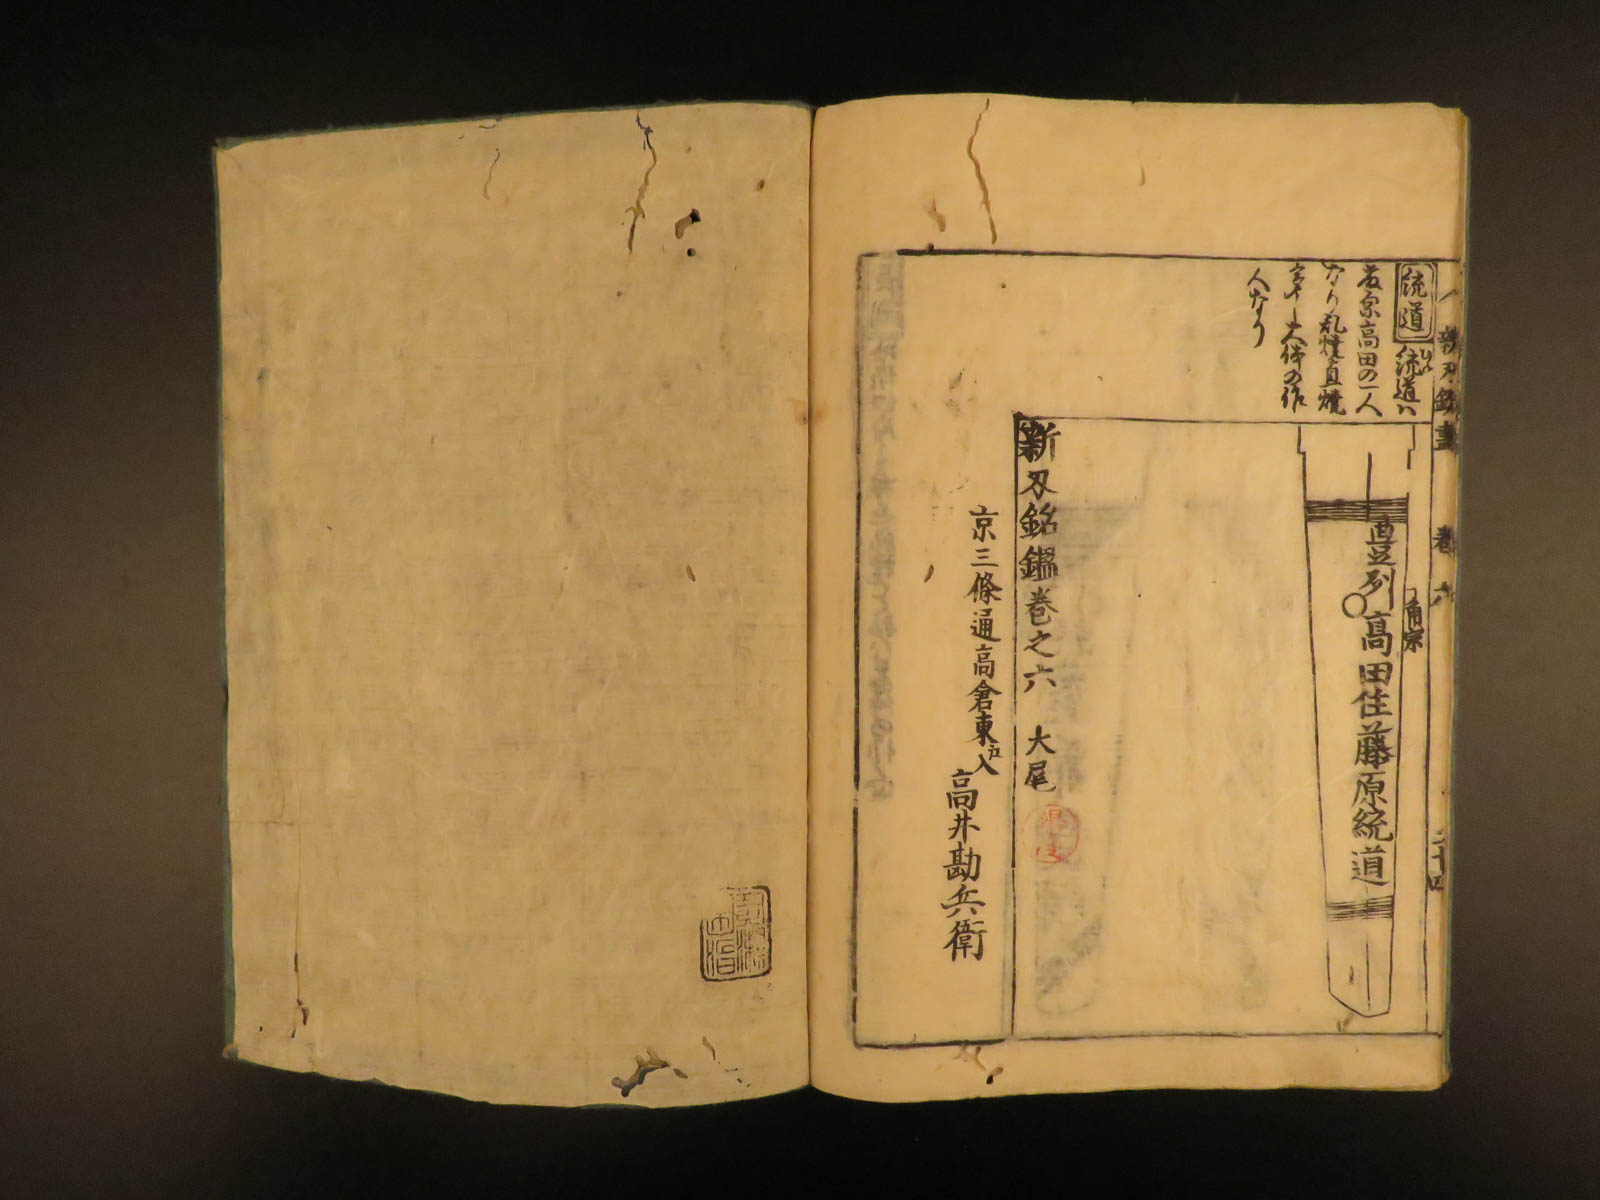 新刃銘盡
卷六
二十四
統道
統道ハ
高田の一人
なり乱焼直焼
大体の作
人なり
豊列高田住藤原統道
新刃銘鑑巻之六 大尾
京三條通高倉東入
高井勘兵衛